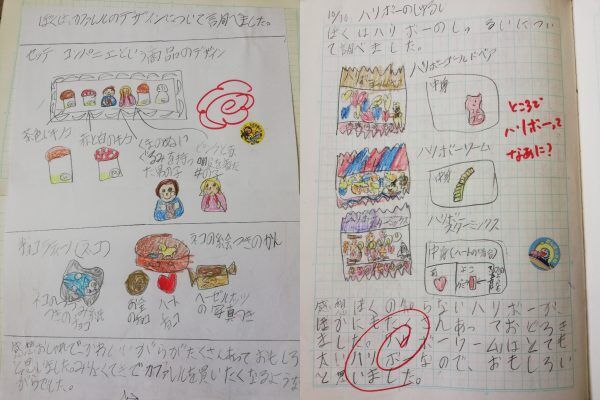 ぼくは、カファレルのデザインについて調べました。
セッテ コンパニエという商品のデザイン
茶色いキノコ
赤と白のキノコ
女の子
チョコクリーム(ネコ)
ネコの絵つきのかん
お金のチョコ
ハートチョコ
ヘーゼルナッツの写真つき
感想おしゃれでかわいいがらがたくさんあっておもしろ
いと思いました。みんなてきでカファレルを買いたくなるような
がらでした。
10/10 ハリボーのしゅるい
ぼくはハリボーのしゅるいについ
て調べました。
ハリボーゴールドベア
中身
ところで
ハリボーって
なあに?
ハリボーワーム
中身
ハリボー
スターミックス
中身(ハート
よこ
感想ぼくの知らないハリボーが
ほかにもたくさんあっておどろき
ました。ハリボーワームはとても
太いハリボーなので、おもしろい
と思いました。